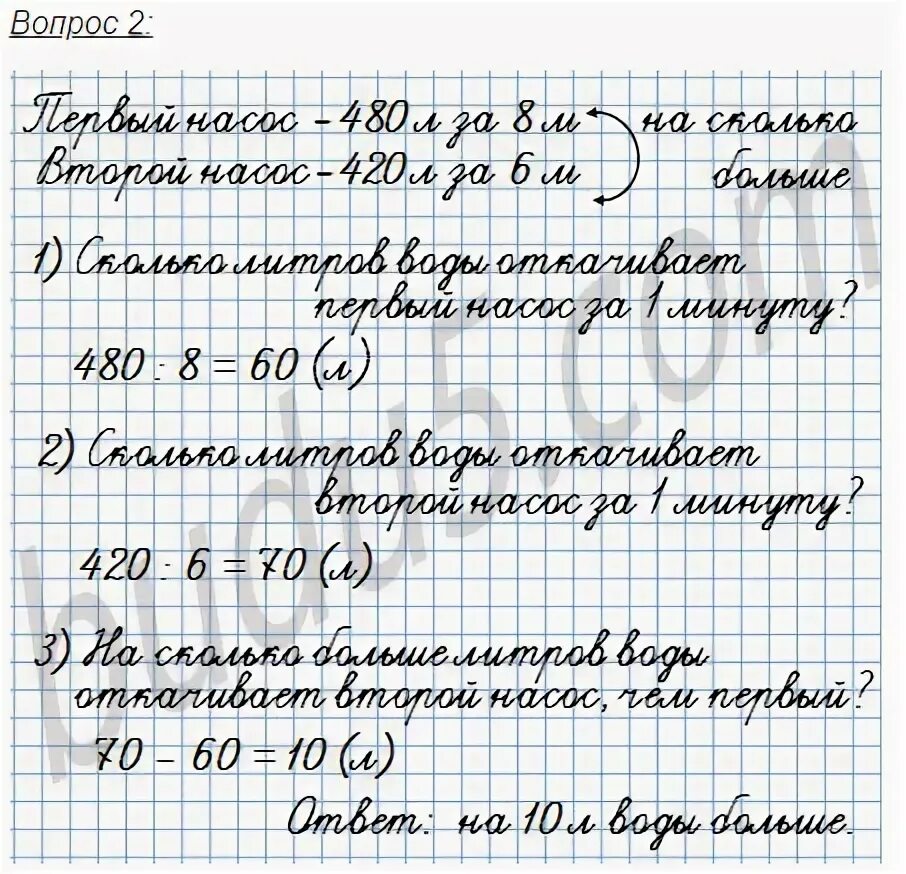 Вопрос 2:
Первый насос – 480 л за 8 м на сколько
Второй насос – 420 л за 6 м больше
1) Сколько литров воды откачивает
первый насос за 1 минуту?
480 : 8 = 60 (л)
2) Сколько литров воды откачивает
второй насос за 1 минуту?
420 : 6 = 70 (л)
3) На сколько больше литров воды
откачивает второй насос, чем первый?
70 – 60 = 10 (л)
Ответ: на 10 л воды больше.
budu5.com